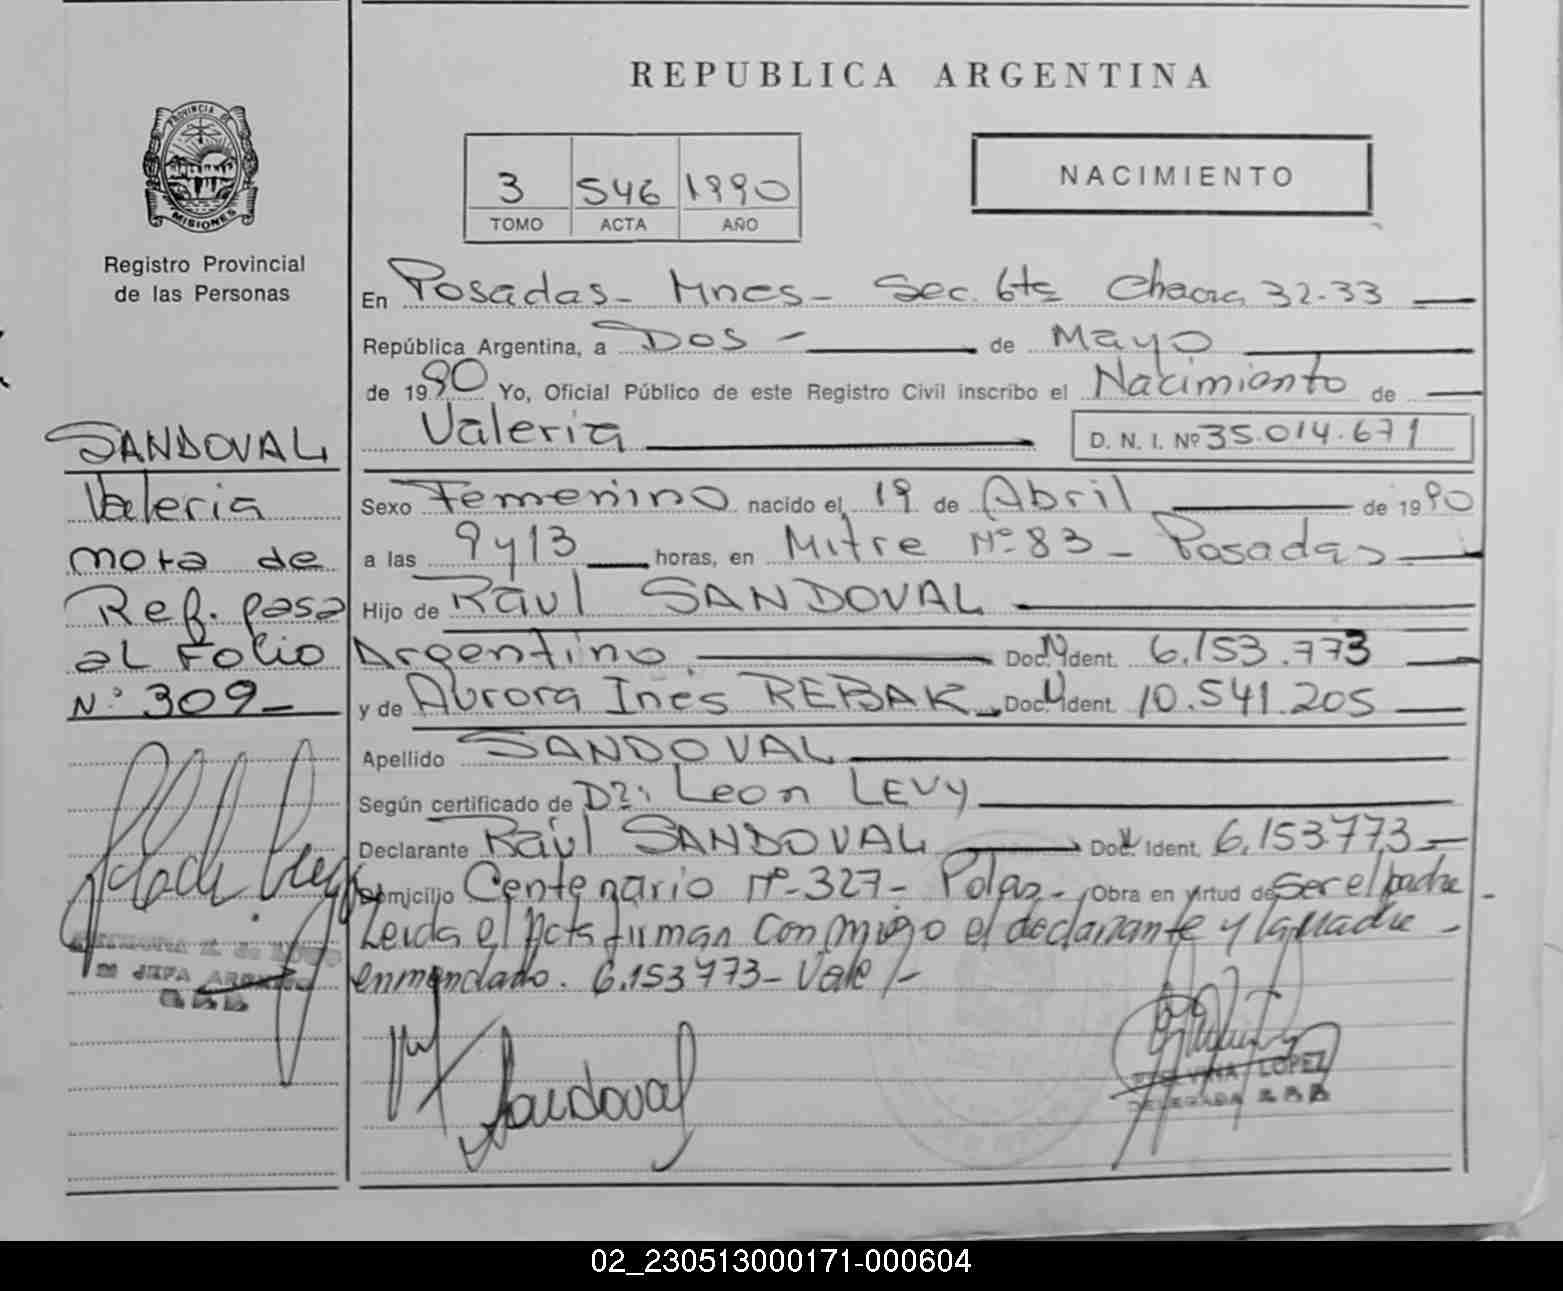 REPUBLICA ARGENTINA
PROVINCIA DE
MISIONES
Registro Provincial
de las Personas
3 546 1990
TOMO ACTA AÑO
NACIMIENTO
En Posadas- Mnes- Sec. 6ta Chacra 32-33
República Argentina, a Dos - de Mayo
de 1990 Yo, Oficial Público de este Registro Civil inscribo el Nacimiento de
Valeria D. N. I. Nº 35.014.671
Sexo Femenino nacido el 19 de Abril de 1990
a las 9 y 13 horas, en Mitre Nº 83 - Posadas
Hijo de Raul SANDOVAL
Argentino Doc. Ident. 6.153.773
y de Aurora Inés REBAK Doc. Ident. 10.541.205
Apellido SANDOVAL
Según certificado de Dr. Leon LEVY
Declarante Raúl SANDOVAL Doc. Ident. 6.153773-
Domicilio Centenario Nº-327- Pdas- Obra en virtud de Ser el padre
Leida el Acta firman conmigo el declarante y la madre -
enmendado. 6.153773- Vale/-
SANDOVAL
Valeria
nota de
Ref. pasa
al Folio
Nº 309-
JEFA
Sandoval
LOPEZ
DELEGADA
02_230513000171-000604